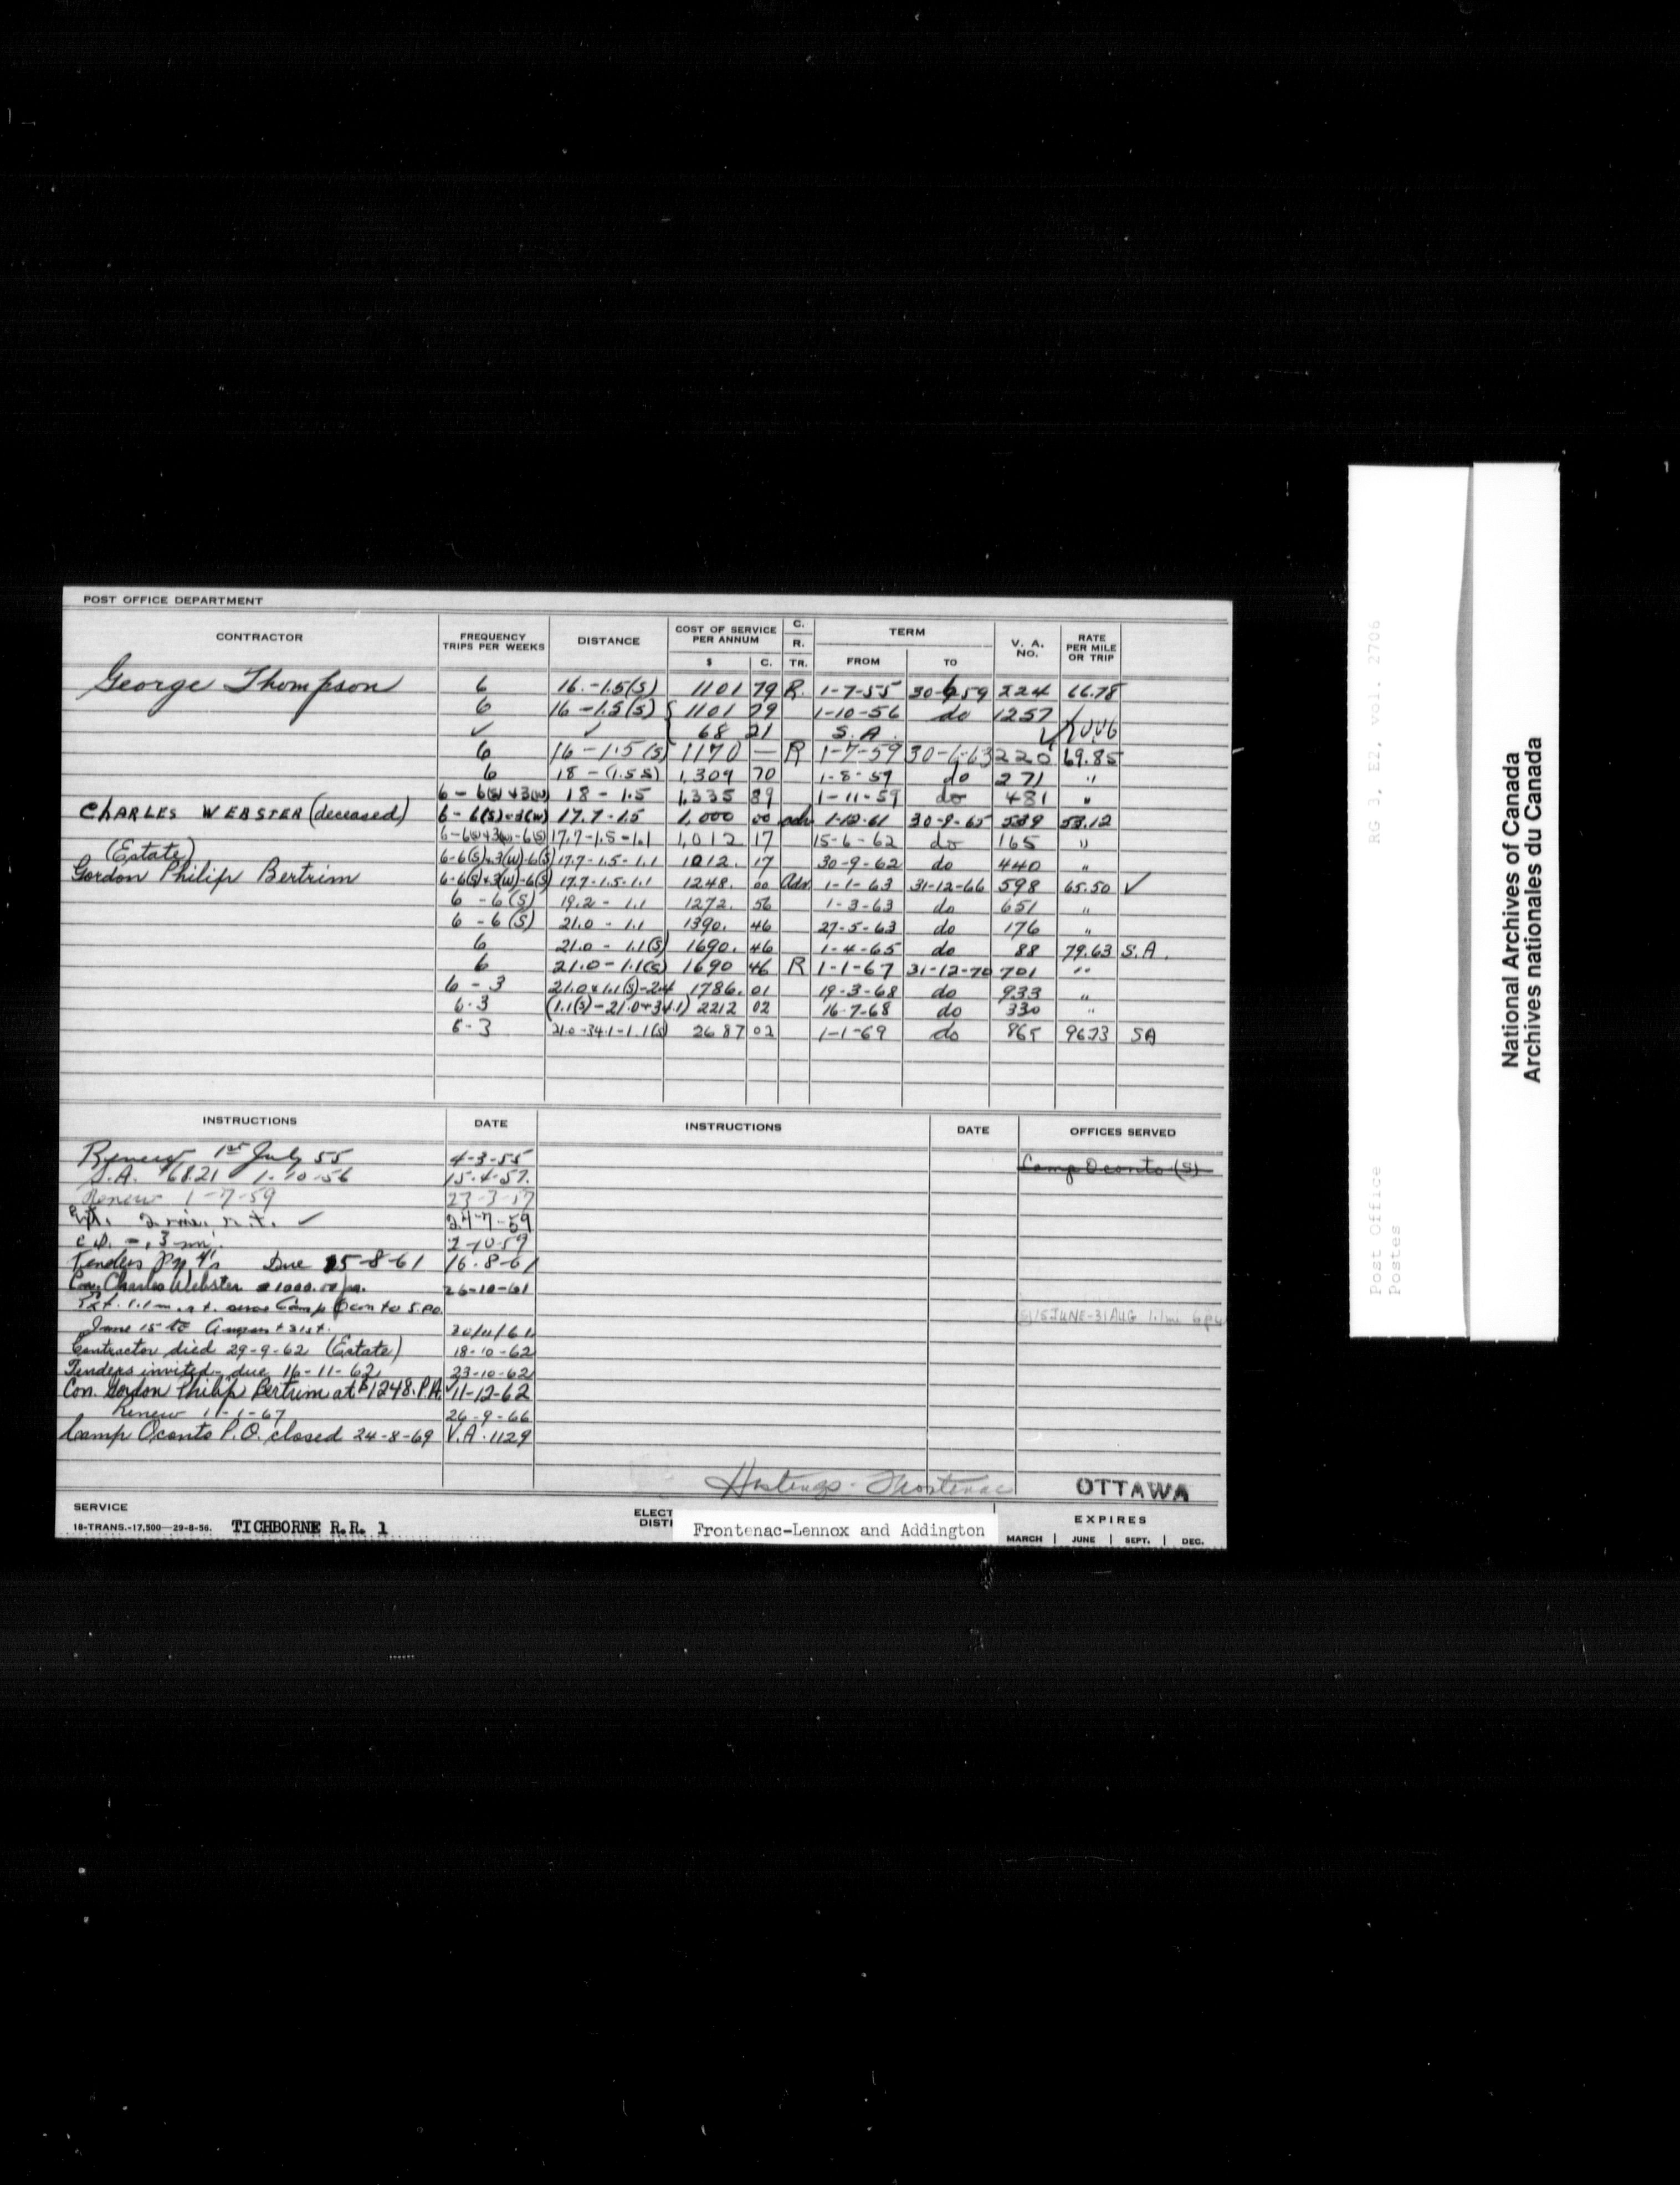 POST OFFICE DEPARTMENT
CONTRACTOR FREQUENCY TRIPS PER WEEKS DISTANCE COST OF SERVICE PER ANNUM $ C. C. R. TR. TERM FROM TO V. A. NO. RATE PER MILE OR TRIP
George Thompson 6 16.-1.5(S) 1101 79 R. 1-7-55 30-6-59 224 66.78
6 16-1.5(S) { 1101 79 1-10-56 do 1257
✓ ✓ { 68 21 S.A.
6 16-1.5(S) 1170 — R 1-7-59 30-6-63 220 69.85
6 18-(1.5S) 1,309 70 1-8-59 do 271 "
6-6(S)+3(W) 18-1.5 1,335 89 1-11-59 do 481 "
CHARLES WEBSTER (deceased) 6-6(S)+3(W) 17.7-1.5 1,000 00 adv 1-10-61 30-9-65 539 53.12
6-6(S)+3(W)-6(S) 17.7-1.5-1.1 1,012 17 15-6-62 do 165 "
(Estate) 6-6(S)+3(W)-6(S) 17.7-1.5-1.1 1012. 17 30-9-62 do 440 "
Gordon Philip Bertrim 6-6(S)+3(W)-6(S) 17.7-1.5-1.1 1248. 00 Adv. 1-1-63 31-12-66 598 65.50 ✓
6-6(S) 19.2-1.1 1272. 56 1-3-63 do 651 "
6-6(S) 21.0-1.1 1390. 46 27-5-63 do 176 "
6 21.0-1.1(S) 1690. 46 1-4-65 do 88 79.63 S.A.
6 21.0-1.1(S) 1690 46 R 1-1-67 31-12-70 701 "
6-3 21.0+1.1(S)-2.4 1786. 01 19-3-68 do 933 "
6-3 (1.1(S)-21.0+34.1) 2212 02 16-7-68 do 330 "
6-3 21.0-34.1-1.1(S) 2687 02 1-1-69 do 865 96.23 SA
INSTRUCTIONS DATE INSTRUCTIONS DATE OFFICES SERVED
Renew 1st July 55 4-3-55 Camp Oconto (S)
S.A. $68.21 1-10-56 15-4-57.
Renew 1-7-59
Ext. 2 mi. r.t. ✓ 24-7-59
c.d. -.3 mi. 2-10-59
Tenders Due 25-8-61 16-8-61
Con. Charles Webster @ 1000.00 pa. 26-10-61
Ext. 1.1 m. r.t. serve Camp Oconto S.P.O. (S) 15 JUNE-31 AUG 1.1 mi
June 15 to August 31st. 20/11/61
Contractor died 29-9-62 (Estate) 18-10-62
Tenders invited - due 16-11-62 23-10-62
Con. Gordon Philip Bertrim at $1248. P.A. 11-12-62
Renew 1-1-67 26-9-66
Camp Oconto P.O. closed 24-8-69 V.A. 1129
Hastings-Frontenac OTTAWA
SERVICE
18-TRANS.-17,500—29-8-56. TICHBORNE R.R. 1
ELECT DISTI Frontenac-Lennox and Addington
EXPIRES
MARCH | JUNE | SEPT. | DEC.
RG 3, E2, vol. 2706
Post Office
Postes
National Archives of Canada
Archives nationales du Canada